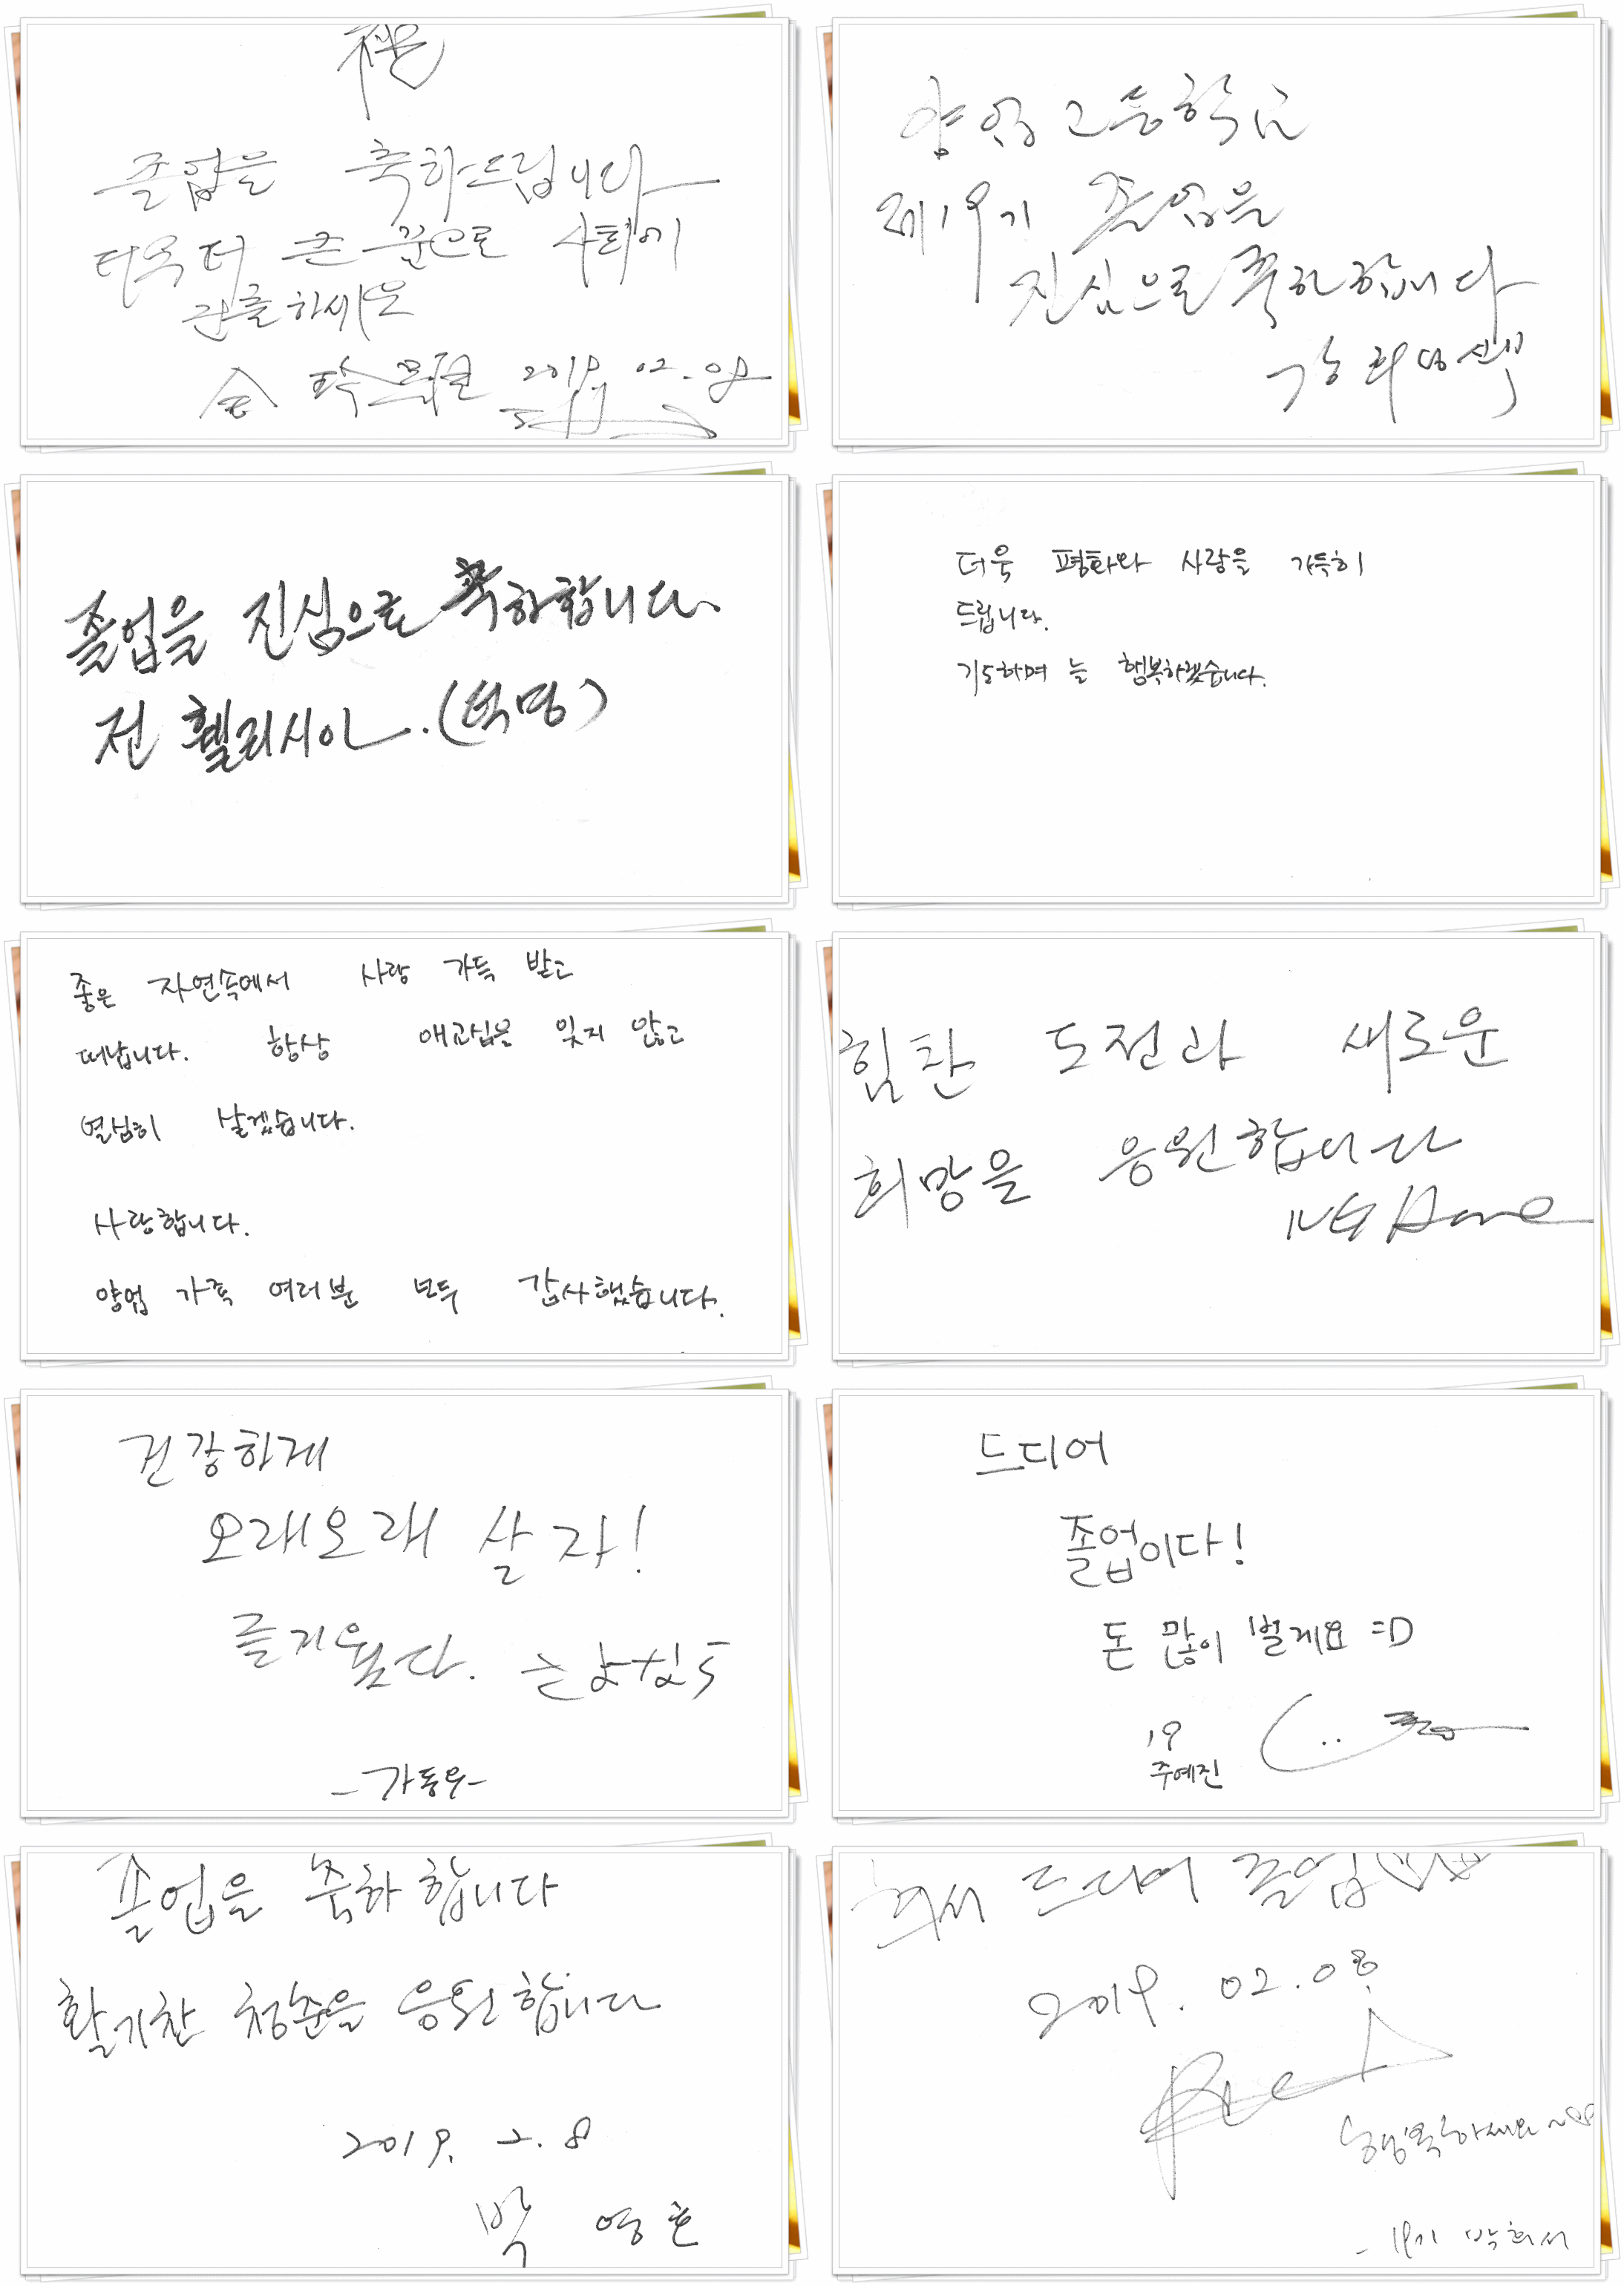 졸업을 축하드립니다
더욱 더 큰 꿈으로 사회에
진출하세요
2019. 02. 08
양업고등학교
제19기 졸업을
진심으로 축하합니다
졸업을 진심으로 축하합니다.
전 휄리시아.
더욱 평화와 사랑을 가득히
드립니다.
기도하며 늘 행복하겠습니다.
좋은 자연속에서 사랑 가득 받고
떠납니다. 항상 애교심을 잊지 않고
열심히 살겠습니다.
사랑합니다.
양업 가족 여러분 모두 감사했습니다.
힘찬 도전과 새로운
희망을 응원합니다
건강하게
오래오래 살자!
즐거웠다.
-가동우-
드디어
졸업이다!
돈 많이 벌게요 =D
19
주예진
졸업을 축하합니다
활기찬 청춘을 응원합니다
2019. 2. 8
박영호
희서 드디어 졸업
2019. 02. 08.
행복하세요~
- 19기 박희서